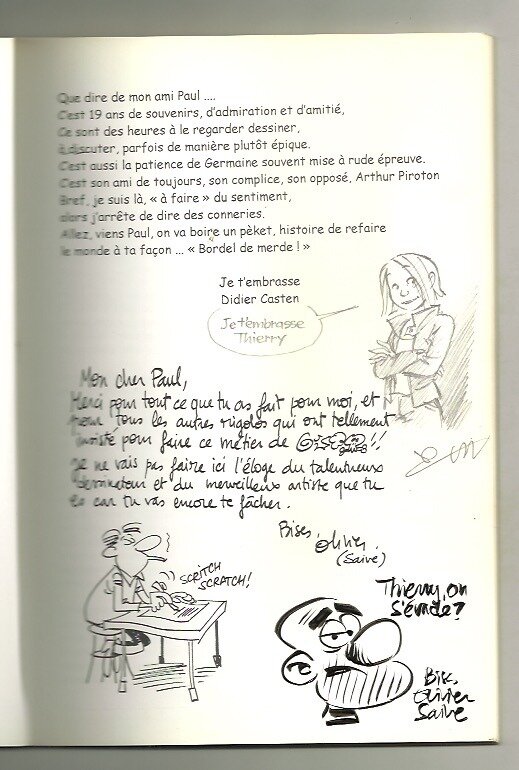 Que dire de mon ami Paul ....
C'est 19 ans de souvenirs, d'admiration et d'amitié,
Ce sont des heures à le regarder dessiner,
à discuter, parfois de manière plutôt épique.
C'est aussi la patience de Germaine souvent mise à rude épreuve.
C'est son ami de toujours, son complice, son opposé, Arthur Piroton
Bref, je suis là, « à faire » du sentiment,
alors j'arrête de dire des conneries.
Allez, viens Paul, on va boire un pèket, histoire de refaire
le monde à ta façon ... « Bordel de merde ! »
Je t'embrasse
Didier Casten
Je t'embrasse
Thierry
Mon cher Paul,
Merci pour tout ce que tu as fait pour moi, et
pour tous les autres rigolos qui ont tellement
insisté pour faire ce métier de !!
Je ne vais pas faire ici l'éloge du talentueux
dessinateur et du merveilleux artiste que tu
es car tu vas encore te fâcher.
Bises,
Olivier
(Saive)
SCRITCH
SCRATCH!
Thierry, on
s'évade?
Bis.
Olivier
Saive